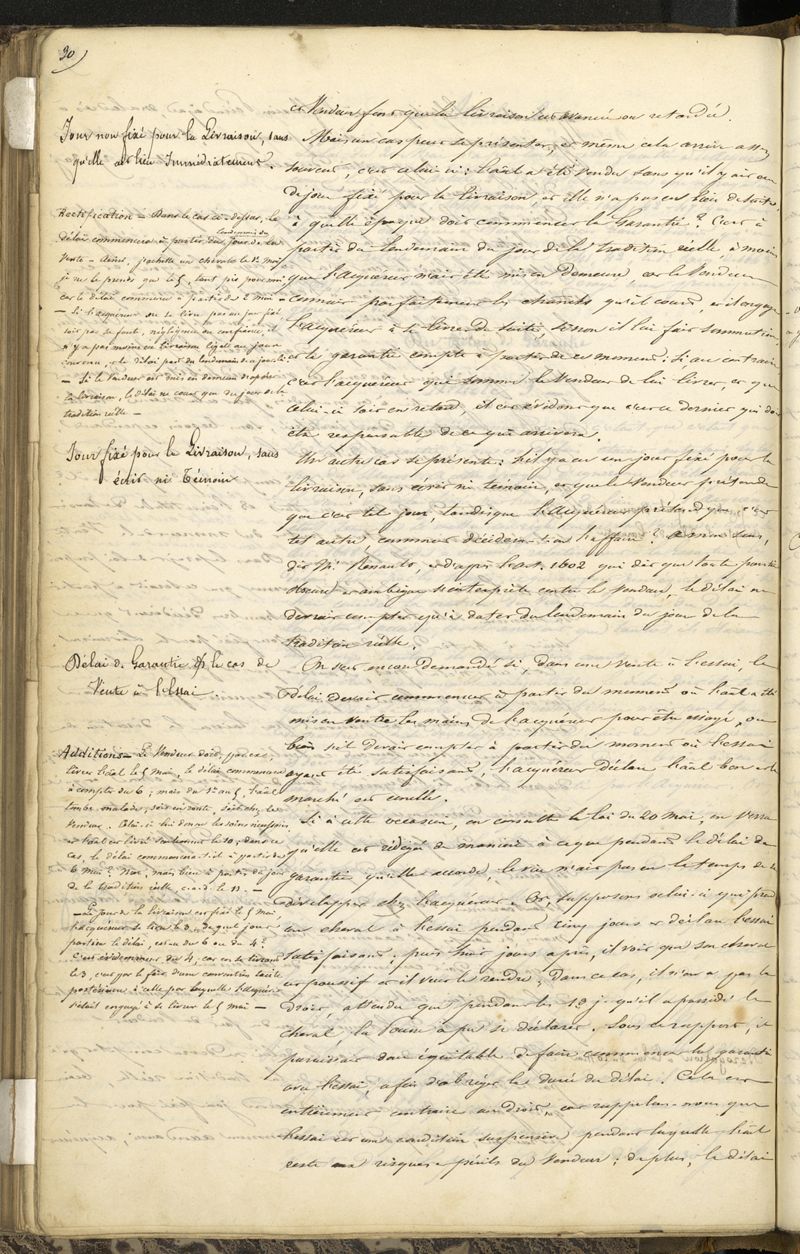 30)
ce Vendeur font que la livraison est avancée ou retardée.
Jour non fixé pour la Livraison, sans
qu'elle ait lieu Immédiatement.
Mais un cas peut se présenter, et même cela arrive assez
souvent, c'est celui-ci : l'aãl a été vendu sans qu'il y ait eu
de jour fixé pour la livraison, et elle n'a pas eu lieu de suite,
à quelle époque doit commencer la Garantie ? C'est à
partir du lendemain du jour de la tradition réelle, à moins
que l'acquéreur n'ait été mis en demeure, car le Vendeur
connait parfaitement les chances qu'il court, et il engage
l'acquéreur à se livrer de suite, sinon il lui fait sommation,
et la garantie compte à partir de ce moment : Si au contraire
c'est l'acquéreur qui somme le Vendeur de lui livrer, et que
celui-ci soit en retard, il est évident que c'est ce dernier qui doit
être responsable de ce qui arrivera.
Rectification - Dans le cas ci-dessus, le
délai commence à partir du lendemain du jour de la
Vente - Ainsi, j'achète un cheval le 1er Mai
je ne le prends que le 5, tant pis pour moi
car le délai commence à partir du 2 Mai -
- Si l'acquéreur ne se livre pas au jour fixé
soit par sa faute, négligence ou confiance, il
n'y a pas moins eu livraison légale au jour
convenu, et le délai part du lendemain de ce jour là
- Si le Vendeur est mis en demeure d'opérer
la livraison, le délai ne court que du jour de la
tradition réelle -
Jour fixé pour la Livraison, sans
écrit ni Témoin
Un autre cas se présente : s'il y a eu un jour fixé pour la
livraison, sans écrit ni témoin, et que le Vendeur prétende
que c'est tel jour, tandis que l'acquéreur prétend que c'est
tel autre, comment décidera-t-on l'affaire ? à mon sens,
dit Mr Renault, et d'après l'art. 1602 qui dit que tout pacte
obscur et ambigu s'interprète contre le Vendeur, le délai ne
devrait compter qu'à dater du lendemain du jour de la
tradition réelle.
Délai de Garantie ds le cas de
Vente à l'Essai.
On s'est encore demandé si, dans une Vente à l'essai, le
délai devait commencer à partir du moment où l'aãl a été
mis entre les mains de l'acquéreur pour être essayé, ou
bien s'il devait compter à partir du moment où l'essai
ayant été satisfaisant, l'acquéreur déclare l'aãl bon et le
marché est conclu.
Si à cette occasion, on consulte la loi du 20 Mai, on verra
qu'elle est rédigée de manière à ce que pendant le délai de
garantie qu'elle accorde, le vice n'ait pas eu le temps de se
développer chez l'acquéreur. Or, supposons celui-ci qui prend
un cheval à l'essai pendant cinq jours et déclare l'essai
satisfaisant. puis huit jours après, il voit que son cheval
est poussif et il veut le rendre ; Dans ce cas, il n'en a pas le
droit, attendu que pendant les 13 j. qu'il a possédé le
cheval, la Pousse a pu se déclarer. Sous ce rapport, il
paraissait donc équitable de faire commencer la garantie
avec l'essai, afin d'abréger la durée du délai. Cela est
entièrement contraire au droit, car rappelons-nous que
l'essai est une condition suspensive pendant laquelle l'aãl
reste aux risques et périls du Vendeur ; de plus, le délai
Additions - Le Vendeur doit, par exe,
livrer l'aãl le 5 Mai, le délai commence
à compter du 6 ; mais du 1er au 5, l'aãl
tombe malade, soit en route, soit chez le
Vendeur. Celui-ci lui donne les soins nécessaires,
et l'aãl est livré seulement le 10, dans ce
cas, le délai commencera-t-il à partir du
6 Mai ? Non, mais bien à partir du jour
de la tradition réelle, c.a.d. le 11. -
- Le jour de la livraison est fixé le 5 Mai
l'acquéreur se livre le 3, de quel jour
partira le délai, est-ce du 6 ou du 4 ?
C'est évidemment du 4, car en se livrant
le 3, c'est par le fait d'une convention tacite
postérieure à celle par laquelle l'acquéreur
s'était engagé à se livrer le 5 Mai -